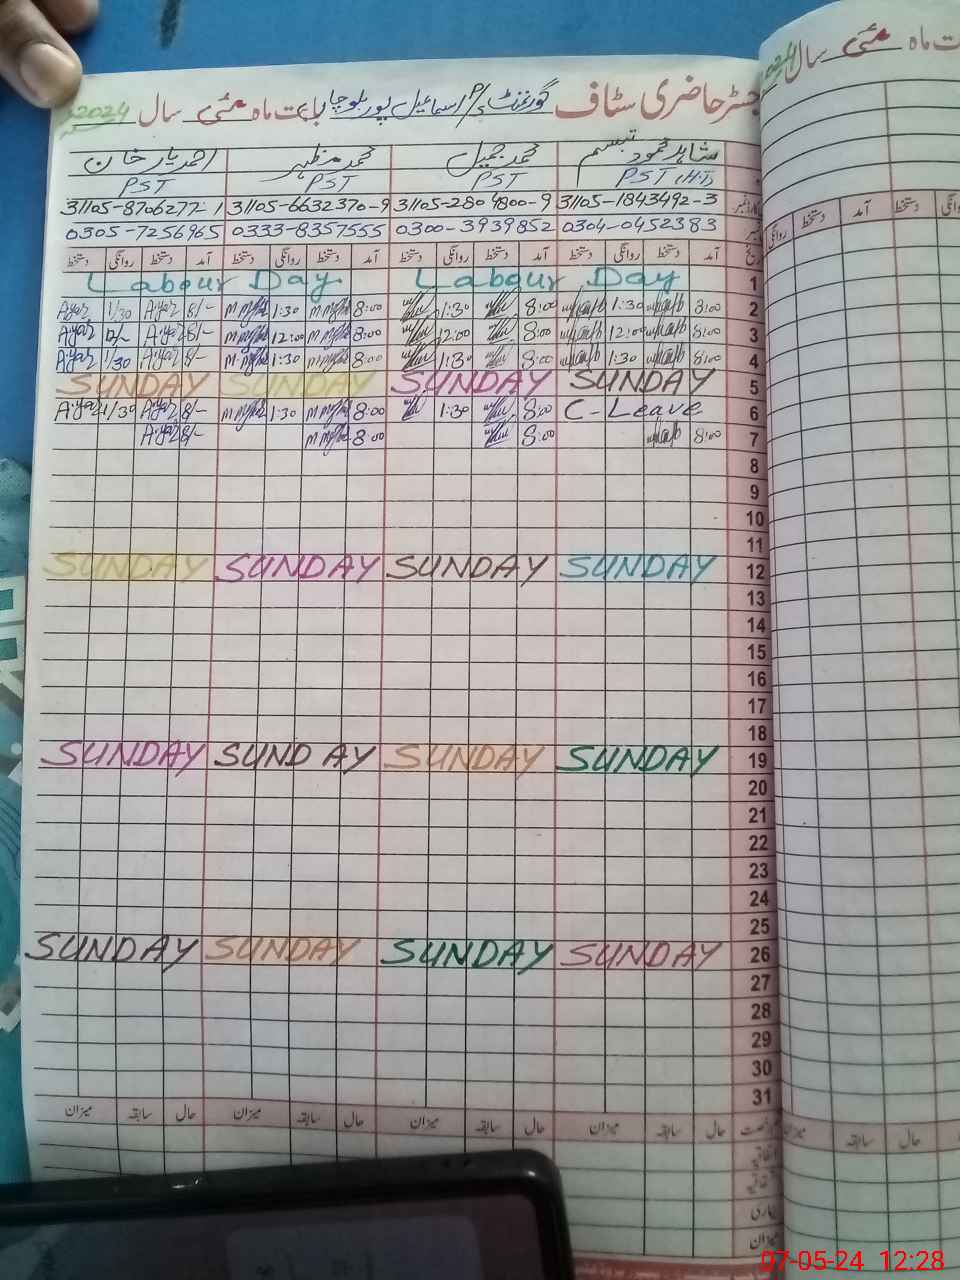 رجسٹر حاضری سٹاف گورنمنٹ P/S اسماعیل پور بلوچا بابت ماہ مئی سال 2024
شاہد محمود تبسم محمد جمیل محمد مظہر احمد یار خان
PST (H.T) PST PST PST
31105-1843492-3 31105-2809800-9 31105-6632370-9 31105-8706277-1
0304-0452383 0300-3939852 0333-8357555 0305-7256965
آمد دستخط روانگی دستخط آمد دستخط روانگی دستخط آمد دستخط روانگی دستخط آمد دستخط روانگی دستخط
Labour Day Labour Day 1
1/30 8/- 1:30 8:00 1:30 8:00 1:30 8:00 2
12/- 8/- 12:00 8:00 12:00 8:00 12:00 8:00 3
1/30 8/- 1:30 8:00 1:30 8:00 1:30 8:00 4
SUNDAY SUNDAY SUNDAY SUNDAY 5
1/30 8/- 1:30 8:00 1:30 8:00 C-Leave 6
8/- 8:00 8:00 8:00 7
8
9
10
11
SUNDAY SUNDAY SUNDAY SUNDAY 12
13
14
15
16
17
18
SUNDAY SUNDAY SUNDAY SUNDAY 19
20
21
22
23
24
25
SUNDAY SUNDAY SUNDAY SUNDAY 26
27
28
29
30
31
رخصت حال سابقہ میزان حال سابقہ میزان حال سابقہ میزان حال سابقہ میزان
میزان
بابت ماہ مئی سال 2024
روانگی دستخط آمد دستخط روانگی
حال سابقہ میزان
07-05-24 12:28